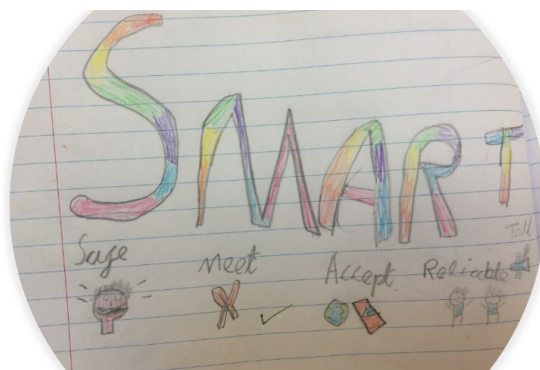 SMART
Safe Meet Accept Reliable Tell